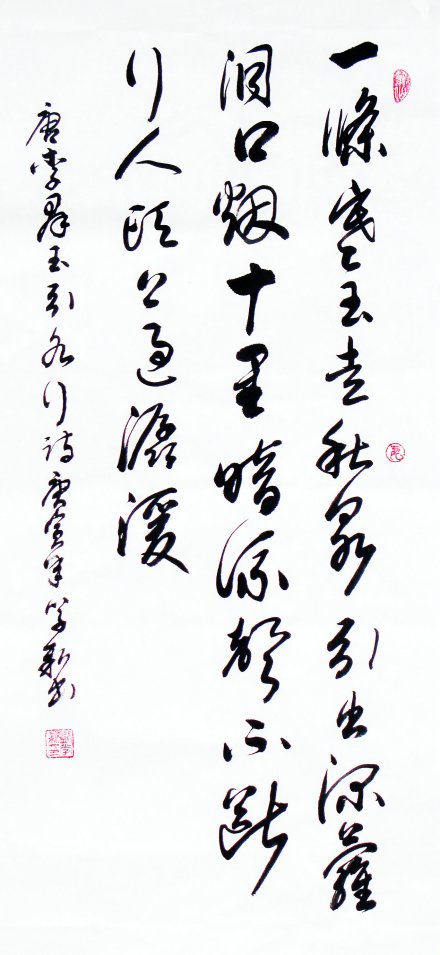 一條寒玉走秋泉引出深蘿
洞口煙十里暗流聲不斷
行人頭上過潺湲
唐李羣玉引水行詩庚寅年新書